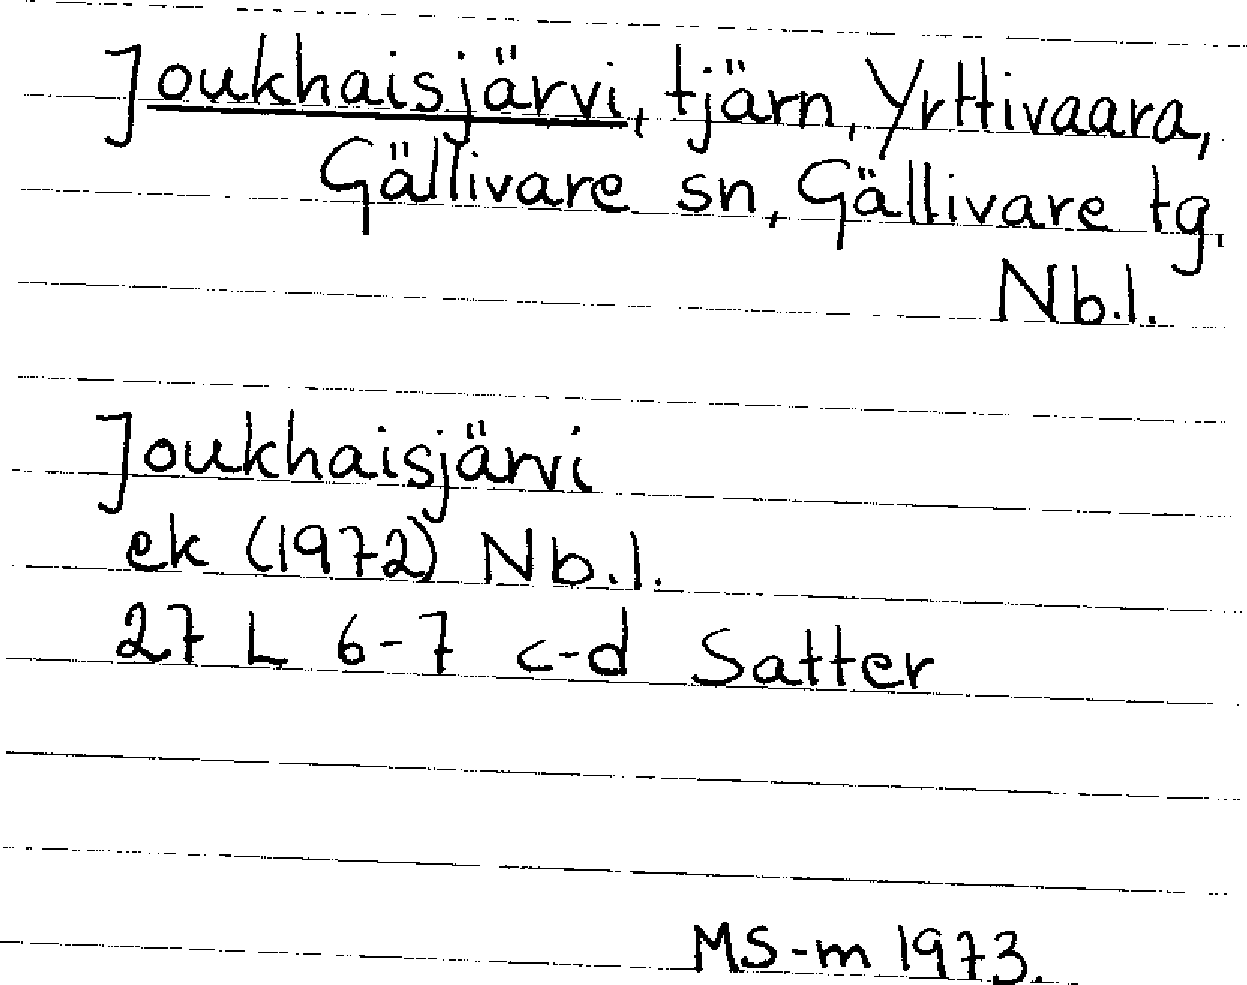 Joukhaisjärvi, tjärn, Yrttivaara,
Gällivare sn, Gällivare tg.
Nb.l.
Joukhaisjärvi
ek (1972) Nb.l.
27 L 6-7 c-d Satter
MS-m 1973.